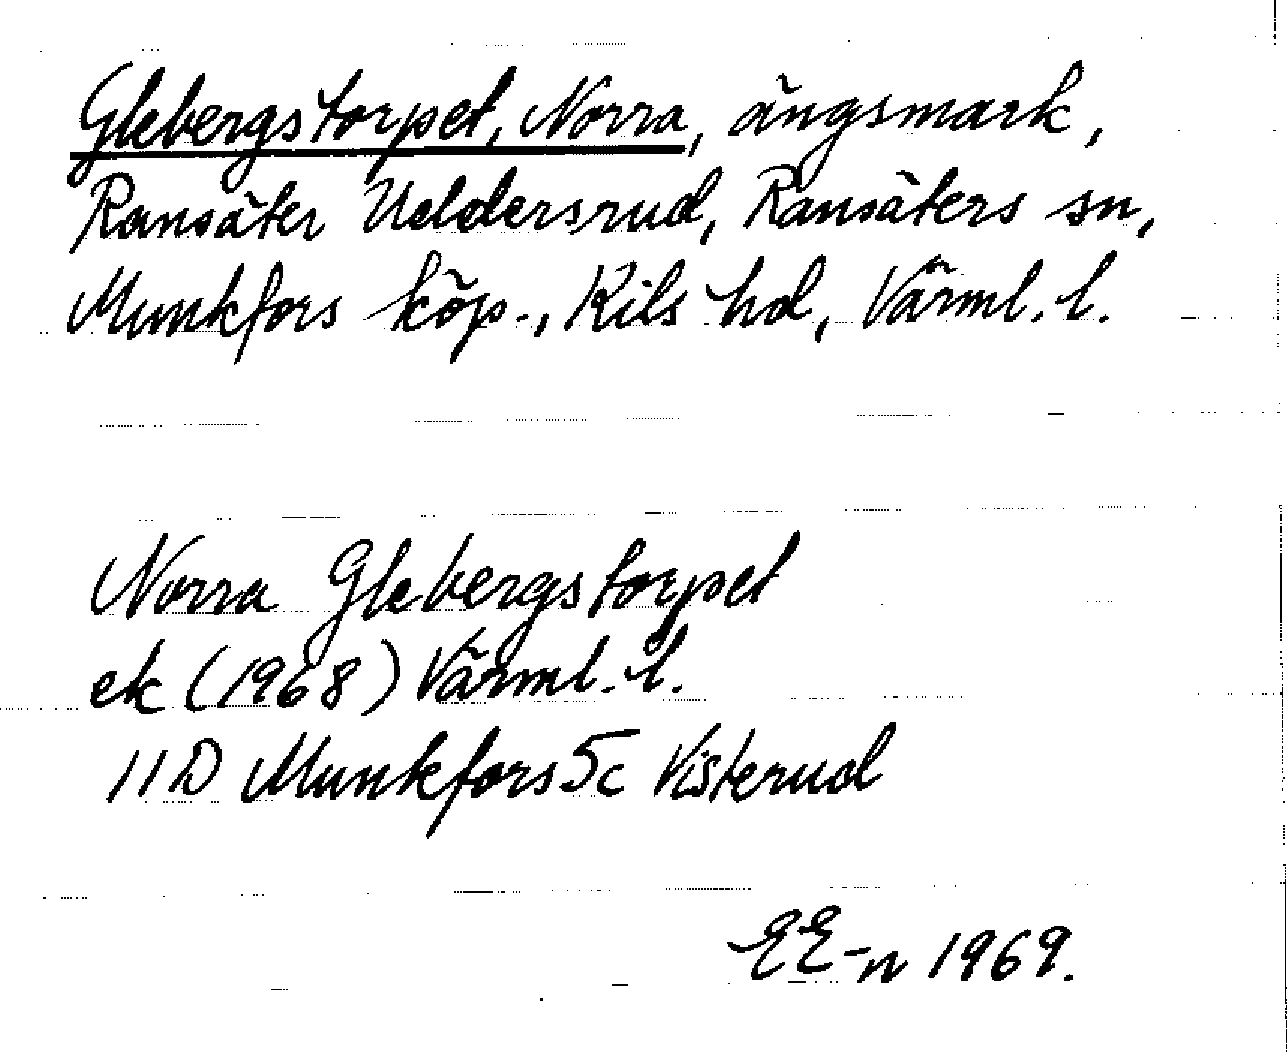 Glebergstorpet, Norra, ängsmark,
Ransäter Ueldersrud, Ransäters sn,
Munkfors köp., Kils hd, Värml. l.
Norra Glebergstorpet
ek (1968) Värml. l.
11D Munkfors 5c Visterud
EE-n 1969.